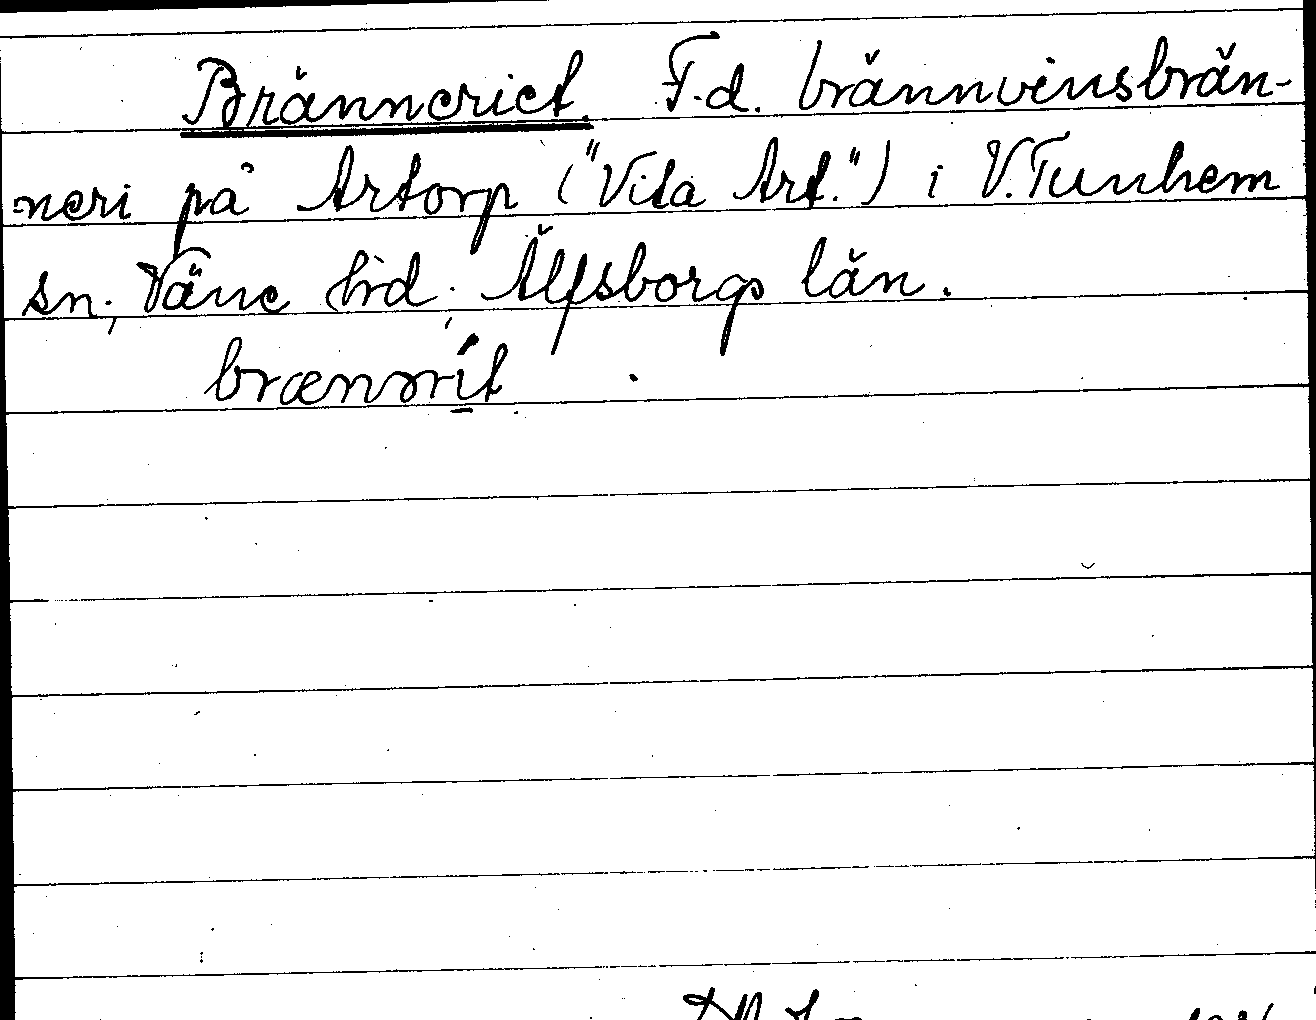 Bränneriet. F.d. brännvinsbrän-
neri på Artorp ("Vita Art.") i V. Tunhem
sn, Väne hd, Älfsborgs län.